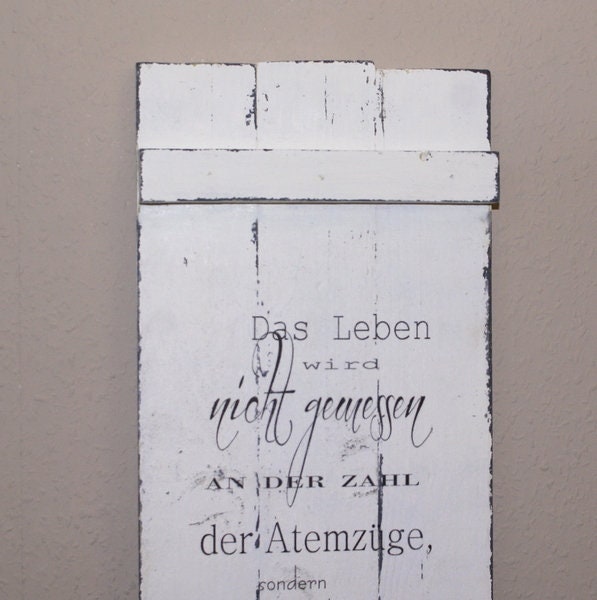 Das Leben
wird
nicht gemessen
AN DER ZAHL
der Atemzüge,
sondern